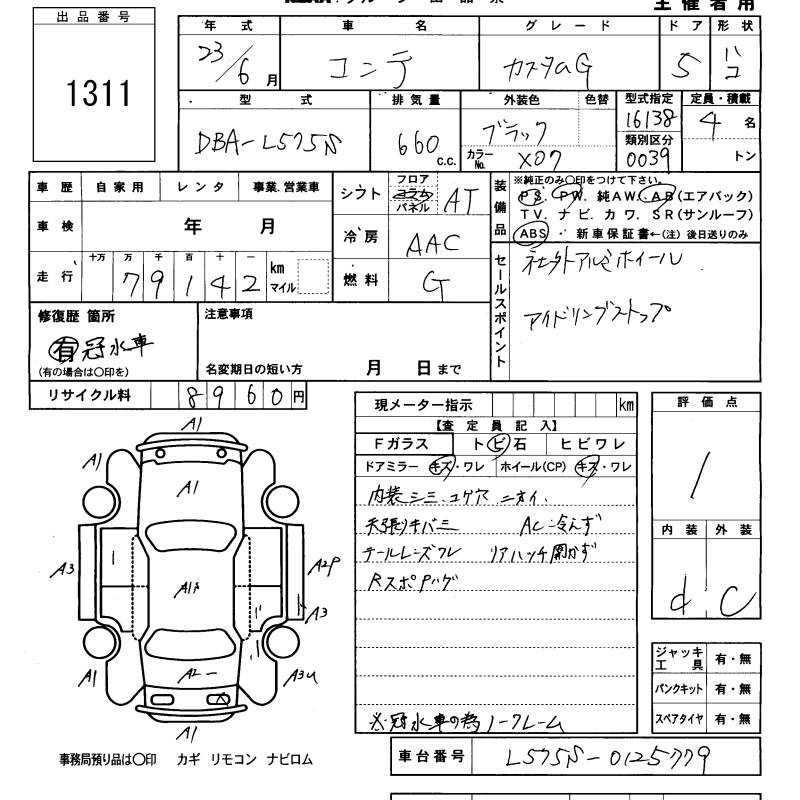 主催者用
出品番号
1311
年式 車名 グレード ドア 形状
23/6月 コンテ カスタムG 5 ハコ
型式 排気量 外装色 色替 型式指定 定員・積載
DBA-L575S 660 c.c. ブラック カラーNo. X07 16138 類別区分 0039 4名 トン
車歴 自家用 レンタ 事業.営業車
車検 年 月
走行 十万 万 千 百 十 一
79142 km マイル
シフト フロア コラム パネル AT
冷房 AAC
燃料 G
装備品
※純正のみ〇印をつけて下さい。
PS. PW. 純AW. AB(エアバック)
TV. ナビ. カワ. SR(サンルーフ)
ABS. 新車保証書←(注) 後日送りのみ
セールスポイント
社外アルミホイール
アイドリングストップ
修復歴 箇所
有 冠水車
(有の場合は〇印を)
注意事項
名変期日の短い方 月 日まで
リサイクル料 8960円
現メーター指示 km
【査定員記入】
Fガラス トビ石 ヒビワレ
ドアミラー キズ・ワレ ホイール(CP) キズ・ワレ
内装シミ.コゲ穴 ニオイ.
天張りキバミ AC冷えず
テールレンズワレ リアハッチ開かず
Rスポハゲ
※冠水車の為ノークレーム
評価点
1
内装 外装
d C
ジャッキ工具 有・無
パンクキット 有・無
スペアタイヤ 有・無
A1
A1
A1
A1
A3
A2P
A1P
A3
A2
A1
A3U
A1
事務局預り品は〇印 カギ リモコン ナビロム
車台番号 L575S-0125779